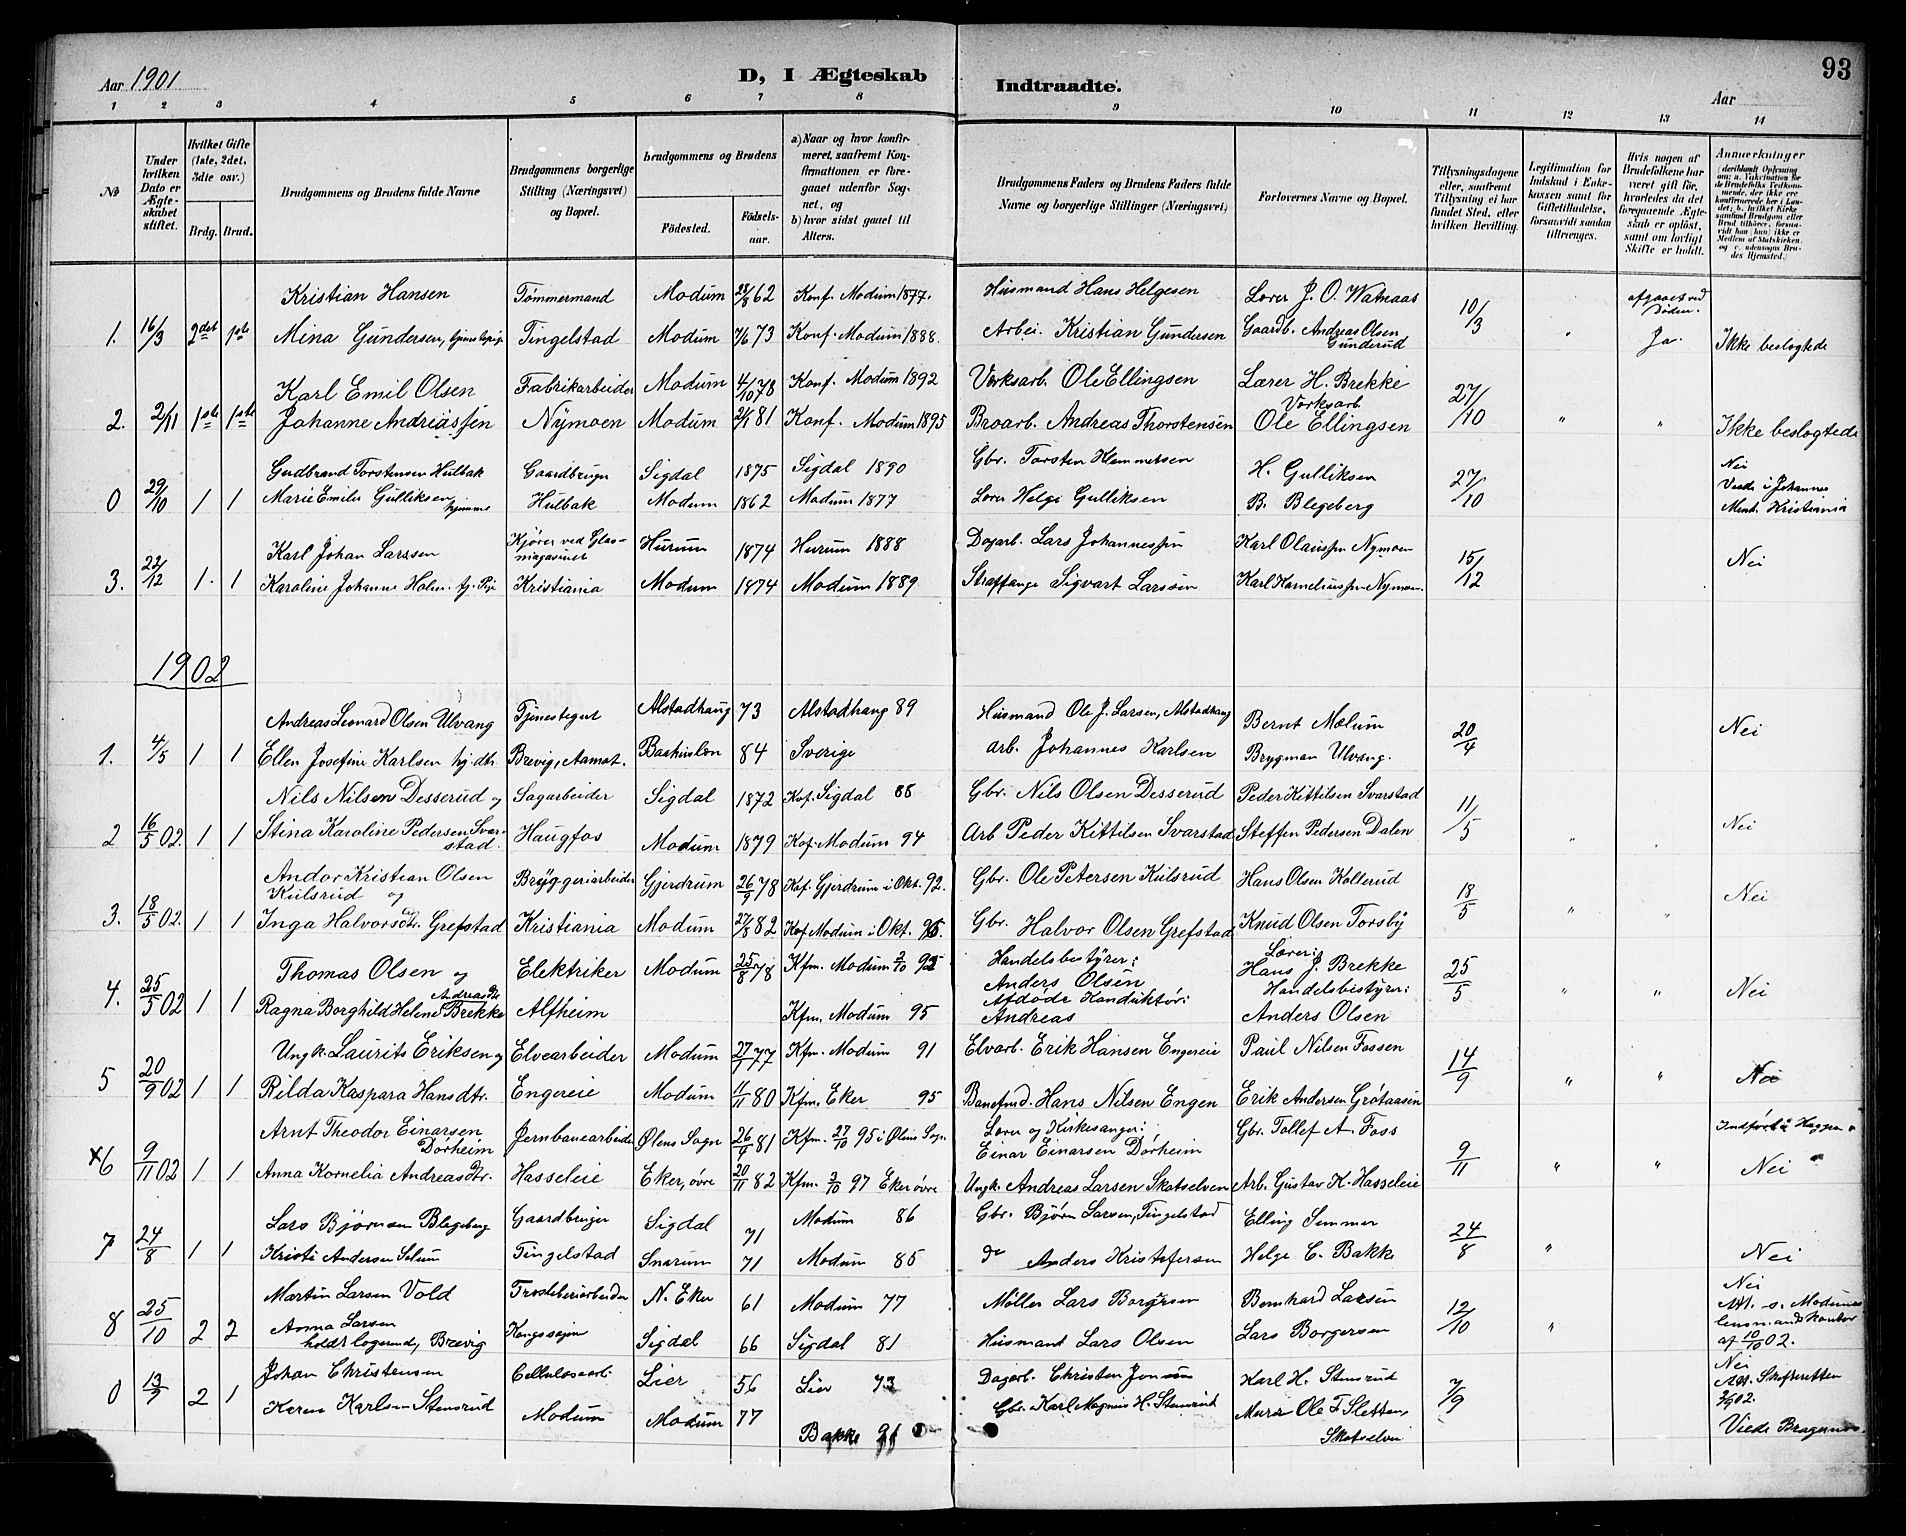 Aar 1901
D, I Ægteskab
Indtraadte.
93
Aar
1 2 3 4 5 6 7 8 9 10 11 12 13 14
No
Under hvilken Dato er Ægteskabet stiftet.
Hvilket Gifte (1ste, 2det, 3die osv.)
Brdg. Brud.
Brudgommens og Brudens fulde Navne
Brudgommens borgerlige Stilling (Næringsvei) og Bopæl.
brudgommens og Brudens
Födested.
Födselsaar.
a) Naar og hvor konfirmeret, saafremt Konfirmationen er foregaaet udenfor Sognet, og
b) hvor sidst gaaet til Alters.
Brudgommens Faders og Brudens Faders fulde Navne og borgerlige Stillinger (Næringsvei)
Forlovernes Navne og Bopæl.
Tillysningsdagene eller, saafremt Tillysning ei har fundet Sted, efter hvilken Bevilling.
Legitimation for Indskud i Enkekassen samt for Giftetilladelse, forsaavidt saadan tiltrænges.
Hvis nogen af Brudefolkene har været gift för, hvorledes da det foregaaende Ægteskab er oplöst, samt om lovligt Skifte er holdt.
Anmerkninger
Kristian Hansen Tømmermand Modum 28/8 62 Konf. Modum 1877. Husmand Hans Helgesen Lærer J. O. Watnaas 10/3 afgaaet ved Døden.
1. 16/3 2det 1ste Mina Gundersen, tjenestepige Tingelstad Modum 7/6 73 Konf. Modum 1888. Arbei. Kristian Gundersen Gaardb. Andreas Olsen Gunderud " Ja. Ikke beslogtede
Karl Emil Olsen Fabrikarbeider Modum 4/10 78 Konf. Modum 1892 Værksarb. Ole Ellingsen Lærer H. Brekke 27/10
2. 2/11 1ste 1ste Johanne Andreassen Nymoen Modum 21/1 81 Konf. Modum 1895 Broarb. Andreas Thorstensen Værksarb. Ole Ellingsen " " Ikke beslogtede
Gudbrand Torstensen Hulbak Gaardbruger Sigdal 1875 Sigdal 1890 Gbr. Torsten Hemmetsen H. Gulliksen 27/10 Nei
0 29/10 1 1 Marie Emilie Gulliksen hjemme Hulbak Modum 1862 Modum 1877 Lærer Helge Gulliksen B. Blegeberg Viede i Johannes Menh. Kristiania
Karl Johan Larssen Kjører ved Glasmagasinet Hurum 1874 Hurum 1888 Dagarb. Lars Johannessen Karl Olaussen Nymoen 15/12 Nei
3. 22/12 1. 1 Karoline Johanne Holm tj. Pige Kristiania Modum 1874 Modum 1889 Straffange Sigvart Larssen Karl Korneliussen Nymoen
1902
Andreas Leonard Olsen Ulvang Tjenestegut Alstadhaug 73 Alstadhaug 89 Husmand Ole J. Larsen, Alstadhaug Bernt Mælum 20/4 Nei
1. 4/5 1 1 Ellen Josefine Karlsen hj. dtr. Brevig, Aamot. Baahuslen 84 Sverige arb. Johannes Karlsen Brygman Ulvang.
Nils Nilsen Desserud og Sagarbeider Sigdal 1872 Kof. Sigdal 88 Gbr. Nils Olsen Desserud Peder Kittilsen Svarstad 11/5 Nei
2 16/5 02. 1 1 Stina Karoline Pedersen Svarstad Haugfos Modum 1879 Kof. Modum 94 Arb Peder Kittilsen Svarstad Steffen Pedersen Dalen "
Andor Kristian Olsen Kulsrud og Bryggeriarbeider Gjerdrum 26/9 78 Kof. Gjerdrum i Okt. 92. Gbr. Ole Petersen Kulsrud Hans Olsen Kollerud 18/5 Nei
3. 18/5 02. 1 1 Inga Halvorsdtr. Grefstad Kristiania Modum 27/8 82 Kof Modum i Okt. 96. Gbr. Halvor Olsen Grefstad Knud Olsen Torsby " "
Thomas Olsen og Elektriker Modum 25/8 78 Kfm. Modum 2/10 92 Handelsbestyrer: Anders Olsen Lærer: Hans J. Brekke 25/5
4. 25/5 02 1 1 Ragna Borghild Helene Andreasdtr Brekke Alfheim Kfm. Modum 95 Afdøde Konduktør: Andreas Handelsbestyrer: Anders Olsen " " Nei
Ungk. Laurits Eriksen og Elvearbeider Modum 27/7 77 Kfm. Modum 91 Elvarb. Erik Hansen Engereie Paul Nilsen Fossen 14/9
5 20/9 02 1 1 Rilda Kaspara Hansdtr. Engereie Modum 11/11 80 Kfm. Eker 95 Banefmd. Hans Nilsen Engen Erik Andersen Grötaasen " " Nei
Arnt Theodor Einarsen Dørheim Jernbanearbeider Ølens Sogn 26/9 81 Kfm. 27/10 95 i Ølens Sogn Lærer og Kirkesanger: Einar Einarsen Dørheim Gbr. Tollef A. Foss 9/11 Indført i Haggen
x6 9/11 02 1 1 Anna Kornelia Andreasdtr. Hasseleie Eker, övre 20/11 82 Kfm. 3/10 97 Eker övre Ungk. Andreas Larsen Skotselven Arb. Gustav K. Hasseleie " " Nei
Lars Bjørnsen Blegeberg Gaardbruger Sigdal 71 Modum 86 Gbr. Bjørn Larsen, Tingelstad Elling Simmer 24/8
7 24/8 1 1 Kristi Andersen Solum Tingelstad Snarum 71 Modum 85 do Anders Kristofersen Helge C. Bakke " Nei
Martin Larsen Vold Træsliberiarbeider N. Eker 61 Modum 77 Møller Lars Borgersen Bernhard Larsen 12/10 Nei
8 25/10 2 2 Anna Larsen holdt logerende, Brevig Kongssagen Sigdal 66 Sigdal 81 Husmand Lars Olsen Lars Borgersen " Att. s. Modums lensmandskontor af 10/10 02.
Johan Christensen Cellulosearb. Lier 56 Lier 73 Dagarb. Christen Jonsen Karl H. Stensrud 7/9 Nei
0 13/9 2 1 Karen Karlsen Stensrud Modum Modum 77 Bakke 91 Gbr. Karl Magnus H. Stensrud Murer Ole F Sletten, Skotselven Att. Skifteretten 2/9 02. Viede Bragernes